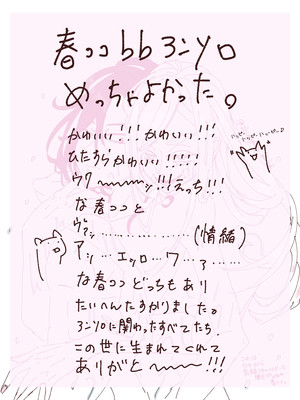 春ココbbヨンソロ
めっちゃよかった。
かわいい!!!かわいい!!!
ひたすらかわいい!!!!!
ウワ〜〜〜ッ!!!えっち!!!
な春ココと
ヴッ
アッ…………………(情緒)
…エッロ…ワ…ろ……
な春ココどっちもあり
たいへんたすかりました。
ヨンソロに関わったすべてたち、
この世に生まれてくれて
ありがと〜〜〜!!!